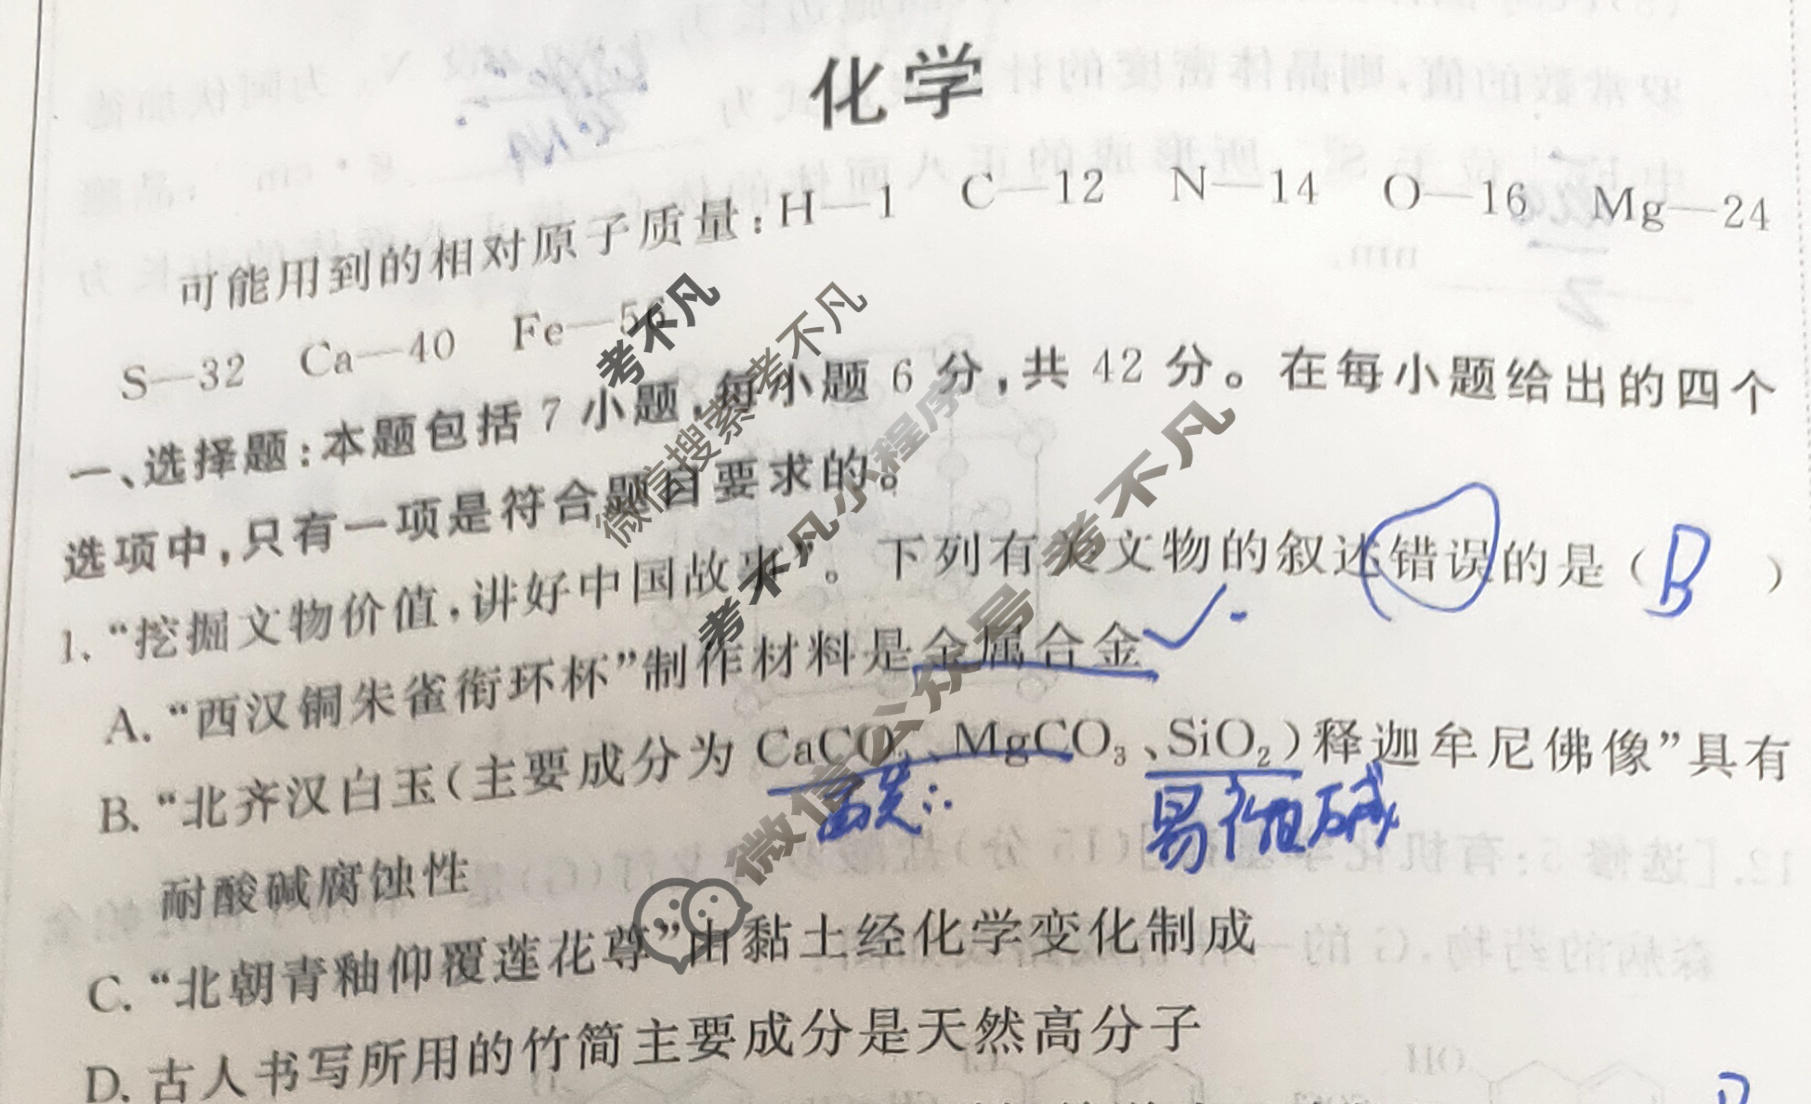 化学
可能用到的相对原子质量:H—1 C—12 N—14 O—16 Mg—24
S—32 Ca—40 Fe—56
一、选择题:本题包括 7 小题,每小题 6 分,共 42 分。在每小题给出的四个
选项中,只有一项是符合题目要求的。
1.“挖掘文物价值,讲好中国故事”。下列有关文物的叙述错误的是( B )
A.“西汉铜朱雀衔环杯”制作材料是金属合金
B.“北齐汉白玉(主要成分为 CaCO₃、MgCO₃、SiO₂)释迦牟尼佛像”具有
易 碱
耐酸碱腐蚀性
C.“北朝青釉仰覆莲花尊”由黏土经化学变化制成
D.古人书写所用的竹简主要成分是天然高分子
考不凡
微信搜索考不凡
考不凡小程序
微信公众号 考不凡